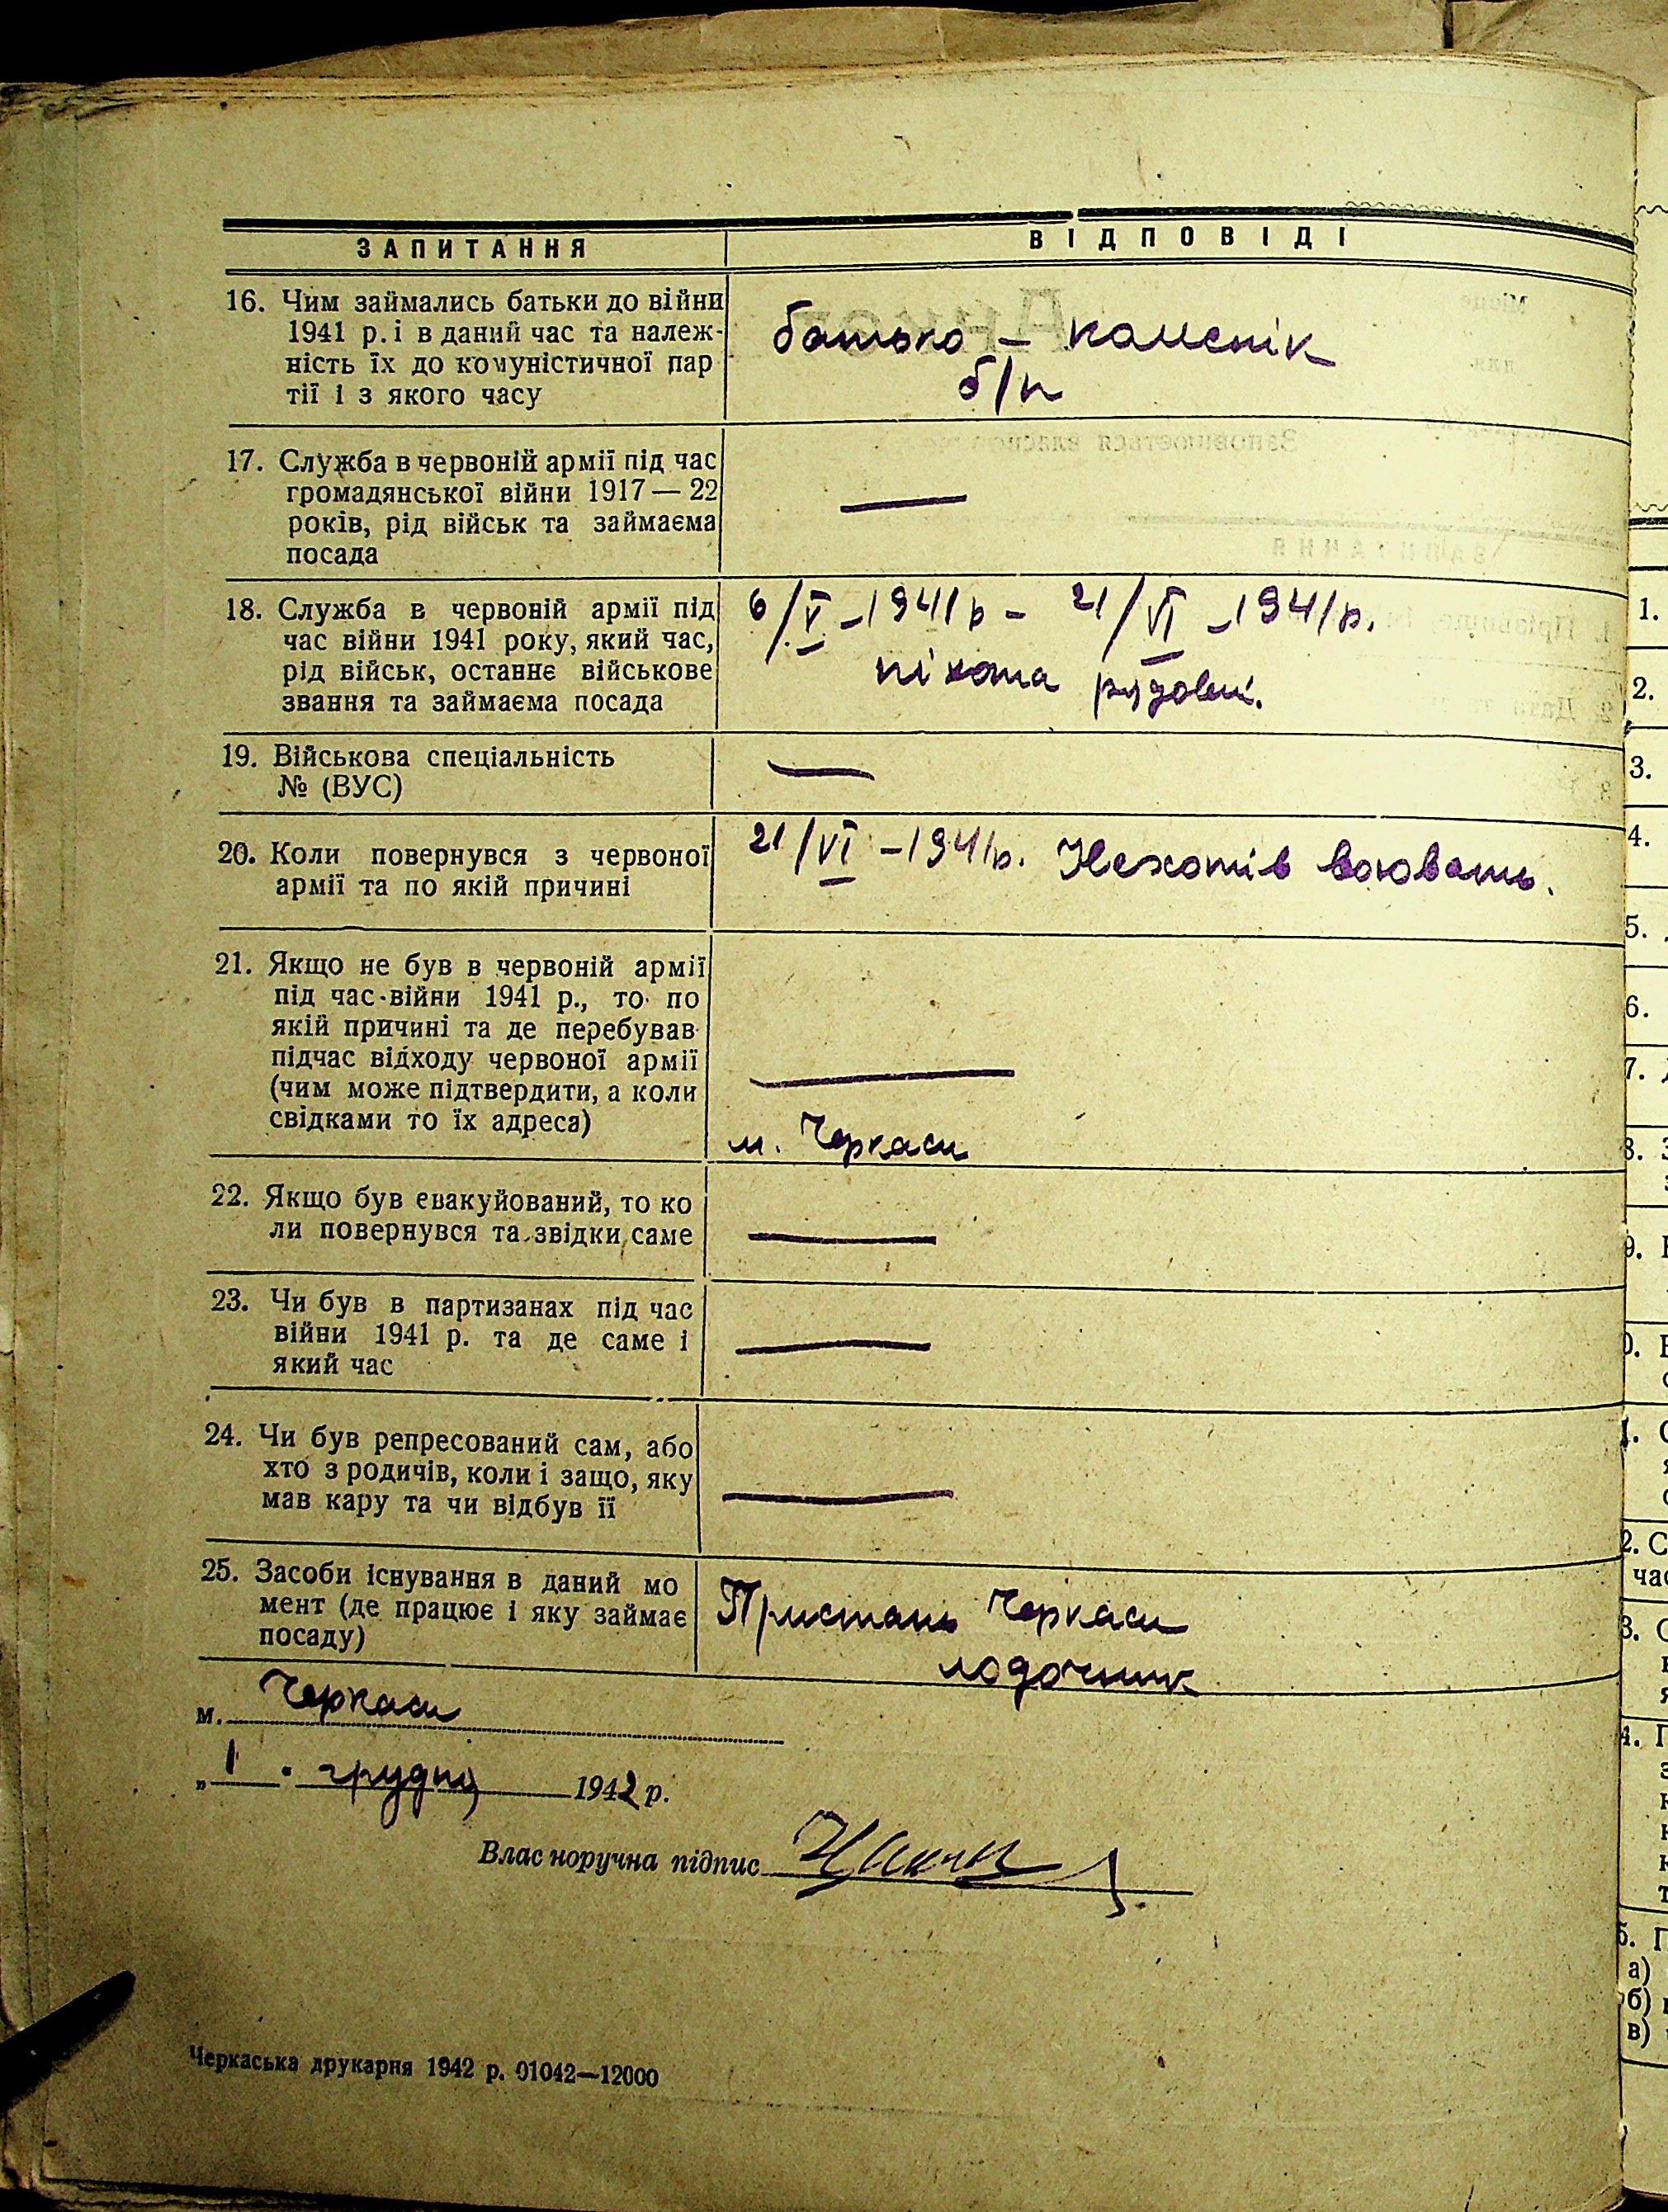 ЗАПИТАННЯ
ВІДПОВІДІ
16. Чим займались батьки до війни
1941 р. і в даний час та належ-
ність їх до комуністичної пар
тії і з якого часу
батько — каменік
б/п
17. Служба в червоній армії під час
громадянської війни 1917 — 22
років, рід військ та займаєма
посада
—
18. Служба в червоній армії під
час війни 1941 року, який час,
рід військ, останнє військове
звання та займаєма посада
6/V – 1941 р – 21/VI – 1941 р.
піхота рядовий.
19. Військова спеціальність
№ (ВУС)
—
20. Коли повернувся з червоної
армії та по якій причині
21/VI – 1941 р. Нехотів воювать.
21. Якщо не був в червоній армії
під час війни 1941 р., то по
якій причині та де перебував
підчас відходу червоної армії
(чим може підтвердити, а коли
свідками то їх адреса)
—
м. Черкаси
22. Якщо був евакуйований, то ко
ли повернувся та звідки саме
—
23. Чи був в партизанах під час
війни 1941 р. та де саме і
який час
—
24. Чи був репресований сам, або
хто з родичів, коли і защо, яку
мав кару та чи відбув її
—
25. Засоби існування в даний мо
мент (де працює і яку займає
посаду)
Пристань Черкаси
лодочник
м. Черкаси
„1 " грудня 1942 р.
Власноручна підпис
Черкаська друкарня 1942 р. 01042—12000
1.
2.
3.
4.
5.
6.
7.
8.
9.